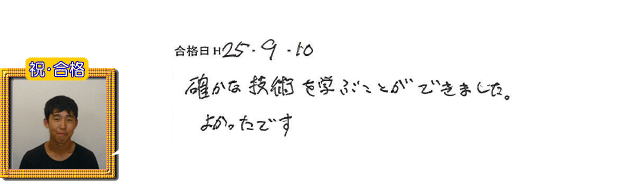 合格日 H25.9.10
祝・合格
確かな技術を学ぶことができました。
よかったです